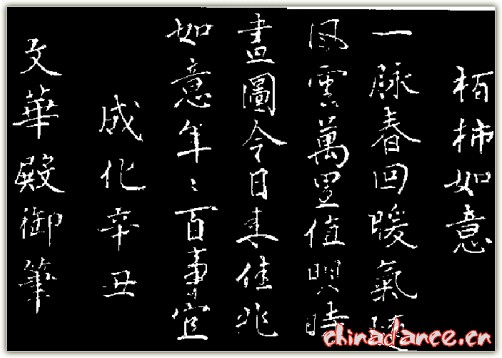 栢柿如意
一脉春回暖氣随
風雲萬里值明時
畫圖今日来佳兆
如意年〻百事宜
成化辛丑
文華殿御筆
chinadance.cn